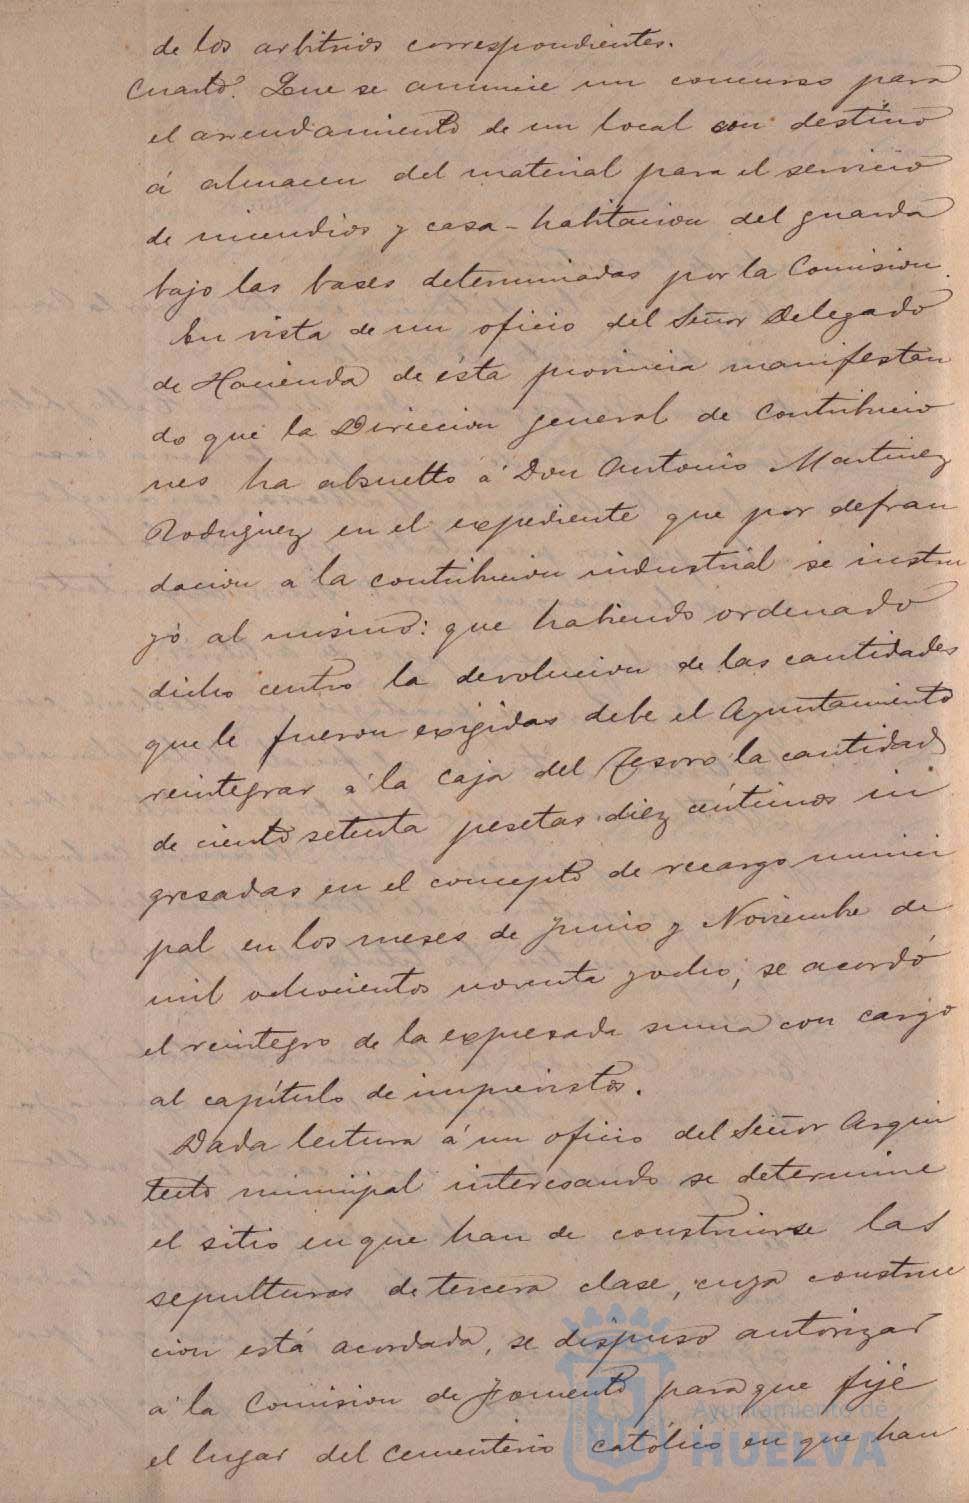 de los arbitrios correspondientes.
Cuarto. Que se anuncie un concurso para
el arrendamiento de un local con destino
á almacen del material para el servicio
de incendios y casa-habitacion del guarda
bajo las bases determinadas por la Comision.
En vista de un oficio del Señor Delegado
de Hacienda de ésta provincia manifestan
do que la Direccion general de Contribucio
nes ha absuelto á Don Antonio Martinez
Rodriguez en el expediente que por defrau
dacion a la contribucion industrial se instru
yó al mismo: que habiendo ordenado
dicho centro la devolucion de las cantidades
que le fueron exigidas debe el Ayuntamiento
reintegrar á la Caja del Tesoro la cantidad
de ciento setenta pesetas diez céntimos in
gresadas en el concepto de recargo munici
pal en los meses de Junio y Noviembre de
mil ochocientos noventa y ocho; se acordó
el reintegro de la expresada suma con cargo
al capítulo de imprevistos.
Dada lectura á un oficio del Señor Arqui
tecto municipal interesando se determine
el sitio en que han de construirse las
sepulturas de tercera clase, cuya construc
cion está acordada, se dispuso autorizar
á la Comision de Fomento para que fije
el lugar del cementerio católico en que han
Ayuntamiento de
HUELVA